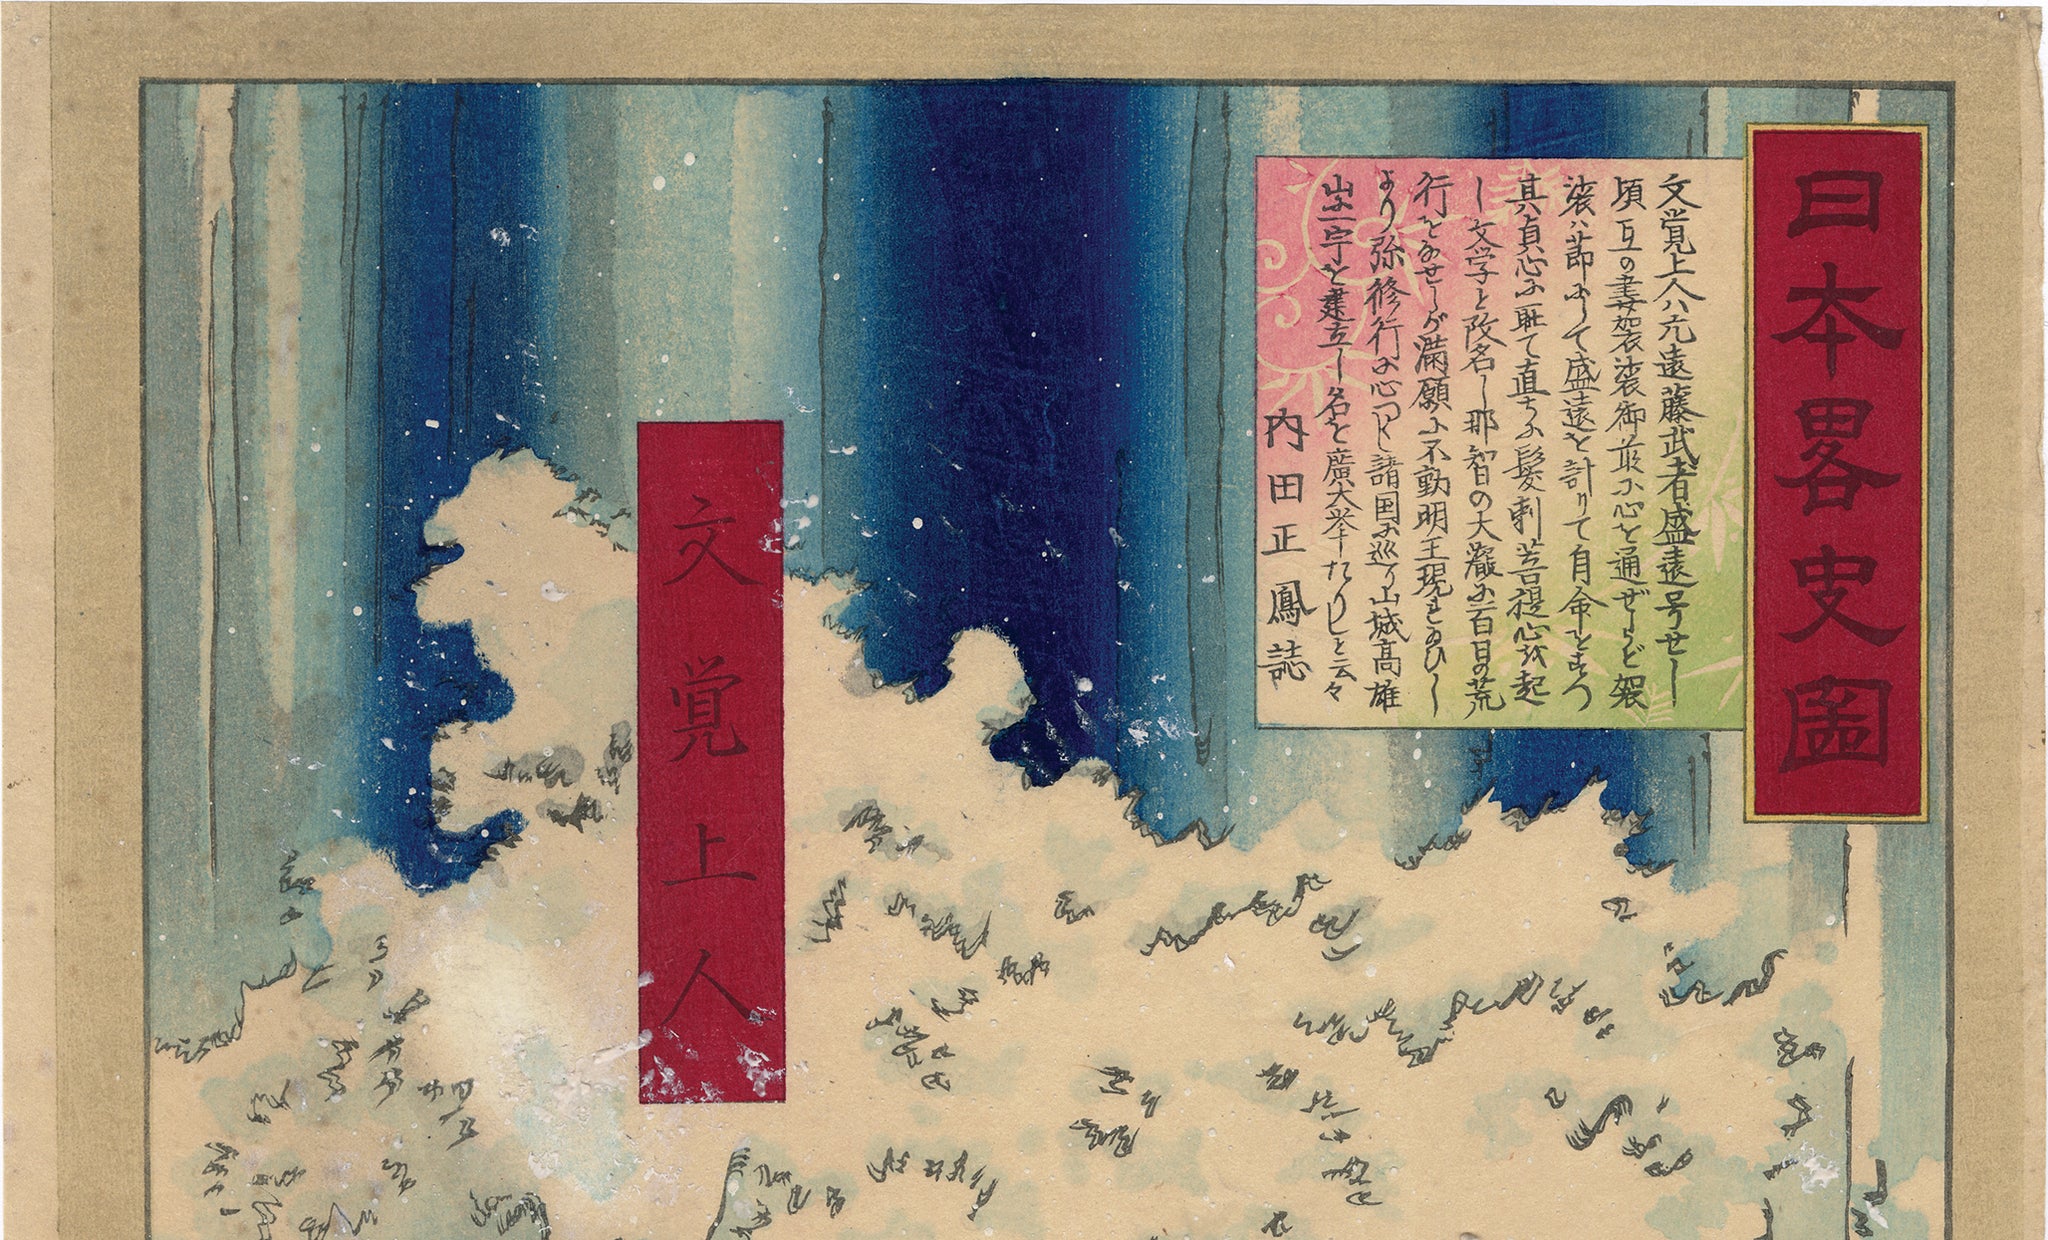 日本畧史圖
文覚上人ハ元遠藤武者盛遠号せし
頃亙の妻袈裟御前に心を通ぜしが袈
裟ハ節よつて盛遠を計りて自命をすつ
其貞心に耻て直ちに髪剃菩提心を起
し文学と改名し那智の大瀧に一百日の荒
行をなせしが満願に不動明王現れ玉ひし
より弥修行に心つくし諸国に巡り山城高雄
山に一宇を建立し名を廣大挙たりしと云々
内田正鳳誌
文覚上人